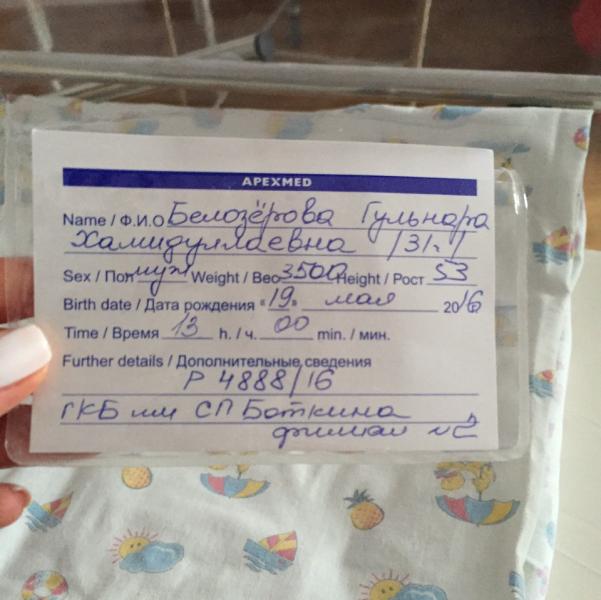 APEXMED
Name / Ф.И.О Белозёрова Гульнара
Хамидуллаевна /31г./
Sex / Пол муж Weight / Вес 3500 Height / Рост 53
Birth date / Дата рождения "19" мая 2016
Time / Время 13 h. / ч. 00 min. / мин.
Further details / Дополнительные сведения
Р 4888/16
ГКБ им СП Боткина
филиал №2